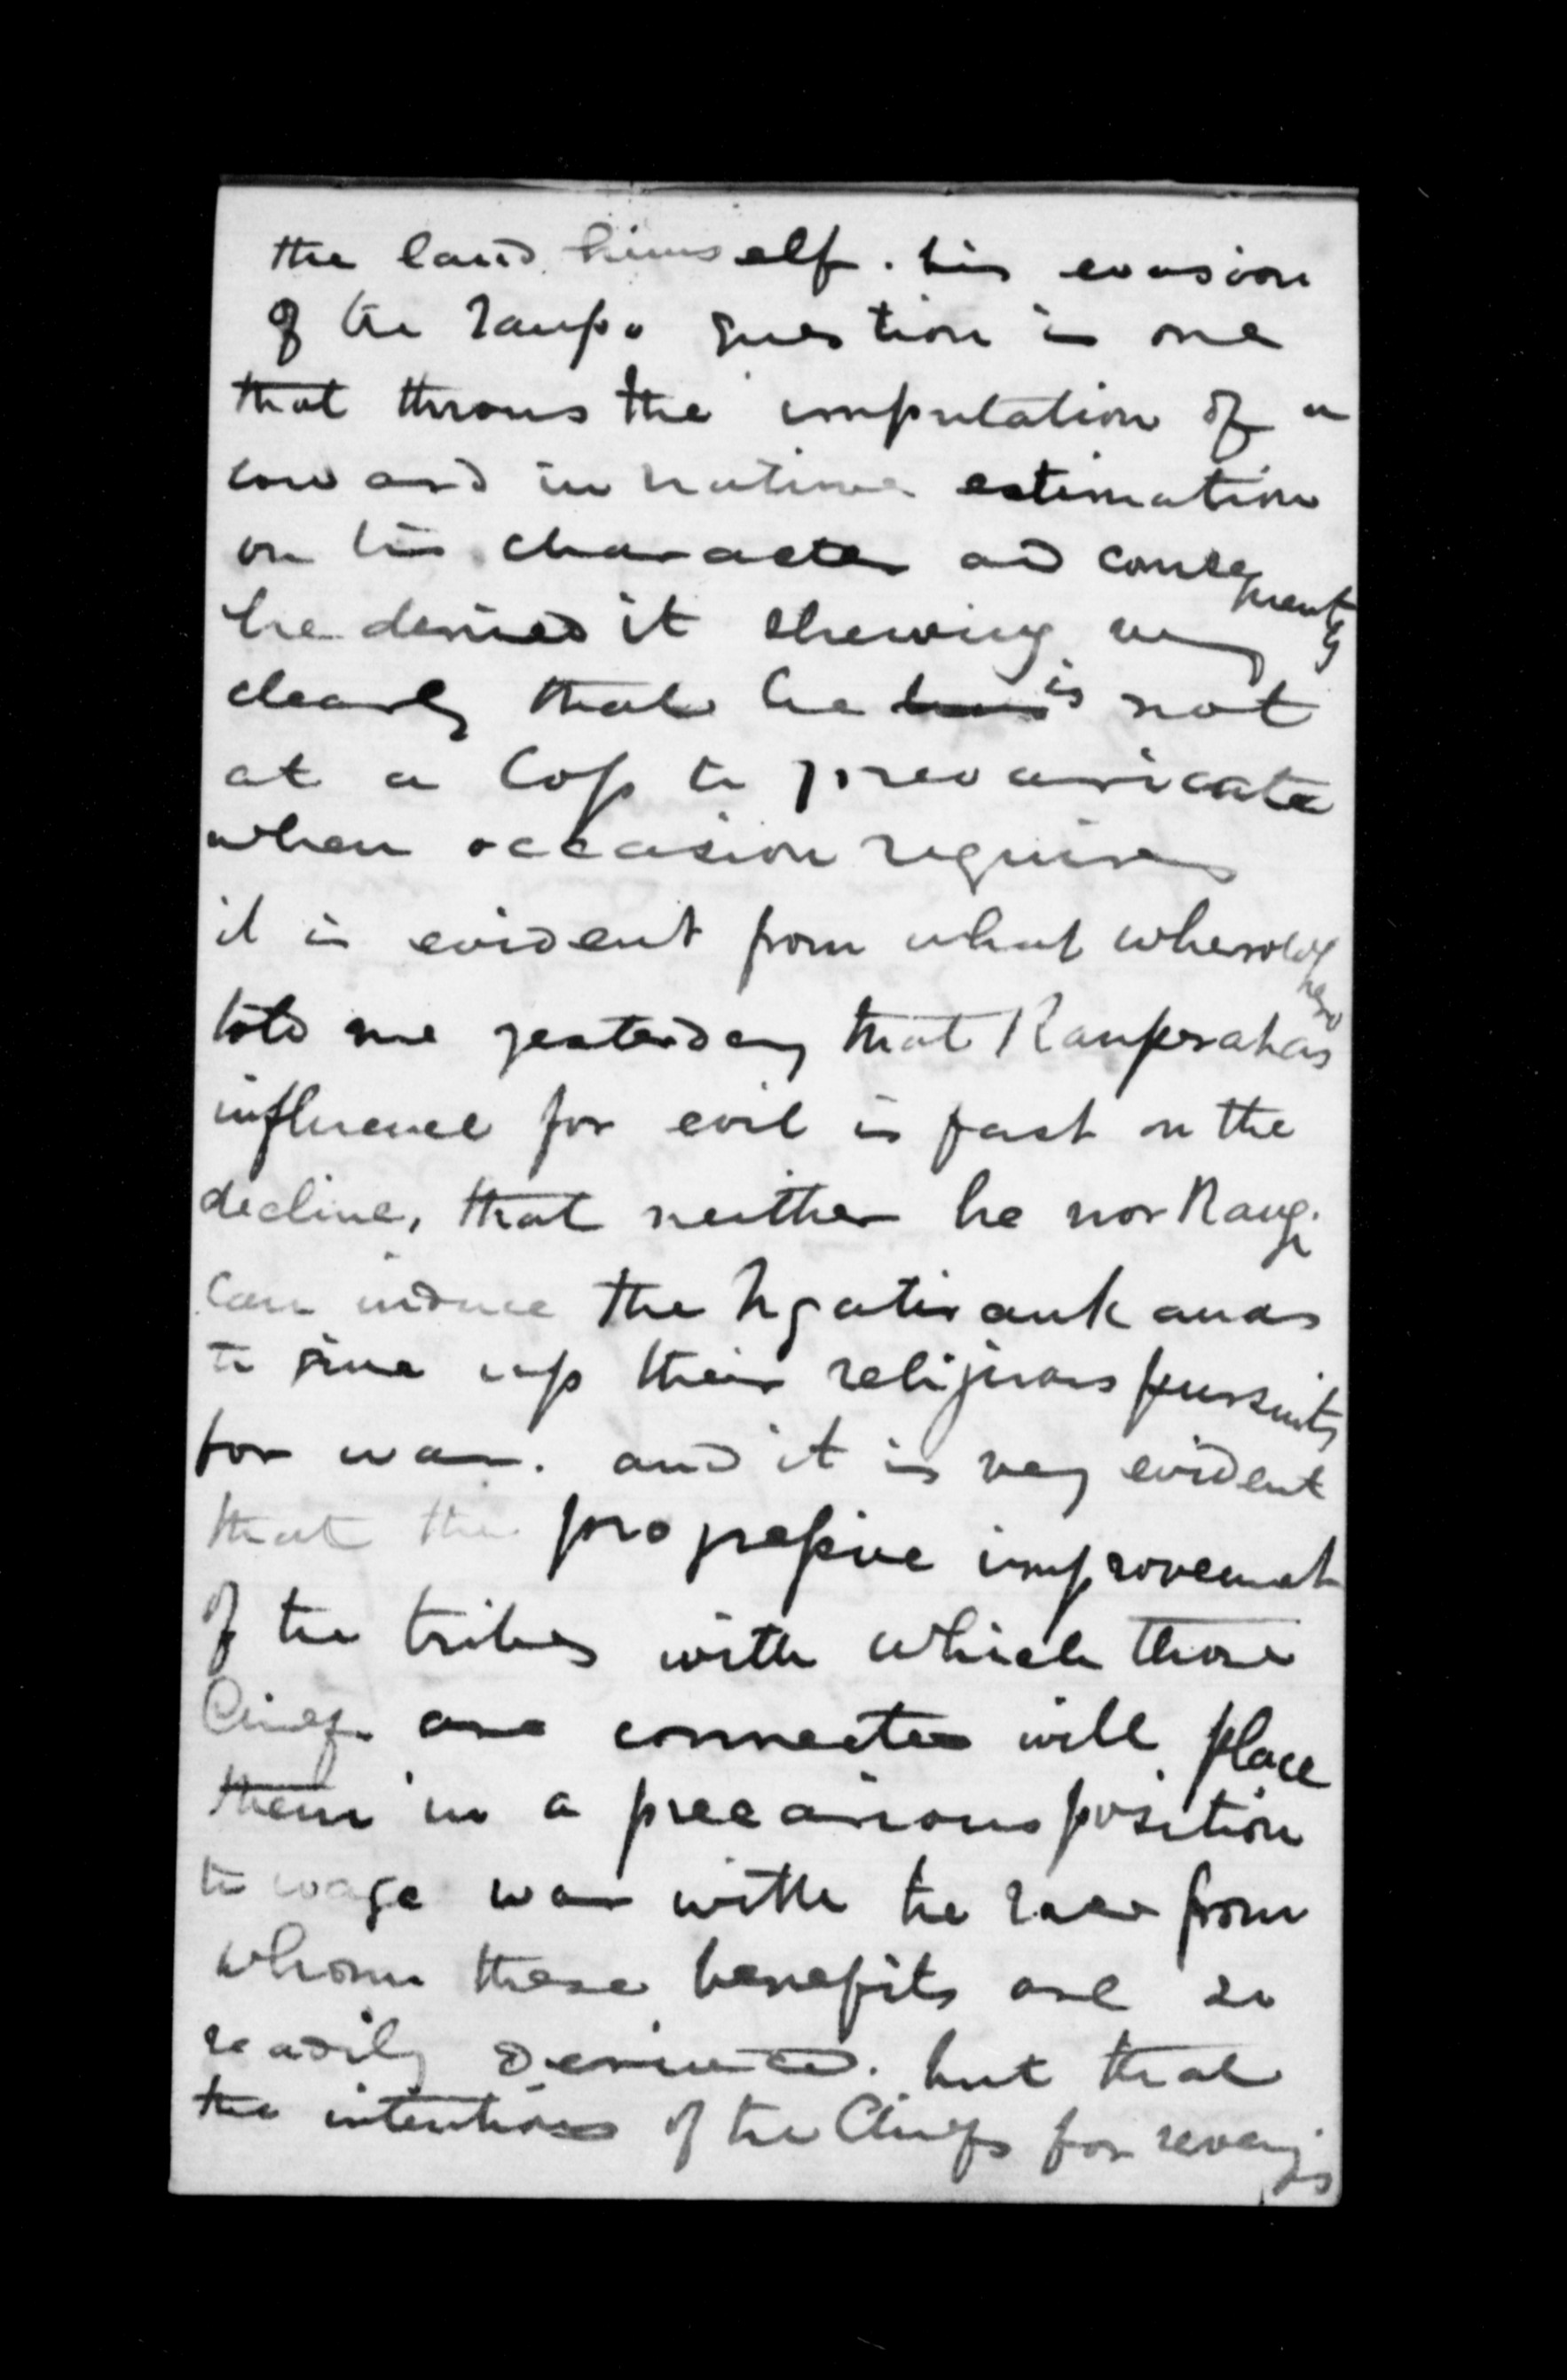 the land himself. his evasion
of the Taupo question is one
that throws the imputation of a
coward in native estimation
on his character and consequently
he denied it shewing very
clearly that he has is not
at a loss to prevaricate
when occasion requires
it is evident from what
told me yesterday that Rauperahas
influence for evil is fast on the
decline, that neither he nor Rangi
can induce the Ngatiraukauas
to give up their religious pursuits
for war. and it is very evident
that the progressive improvement
of the tribes with which those
Chiefs are connected will place
them in a precarious position
to wage war with the race from
whom these benefits are so
readily derived. but that
the intentions of the Chiefs for revenge is